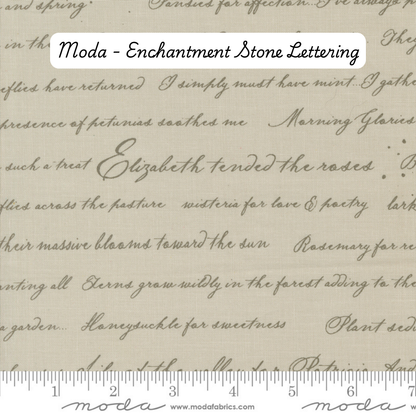 and spring. Pansies for affection...I've always p
Moda - Enchantment Stone Lettering
in th They
eflies have returned I simply must have mint..I gathe
presence of petunias soothes me Morning Glories
such a treat Elizabeth tended the roses
flies across the pasture wisteria for love & poetry lark
their massive blooms toward the sun Rosemary for re
anting all Ferns grow wildly in the forest adding to the
a garden... Honeysuckle for sweetness Plant sed
of the valley for Patri
1 2 3 4 5 6
moda www.modafabrics.com moda www.modafabrics.com moda